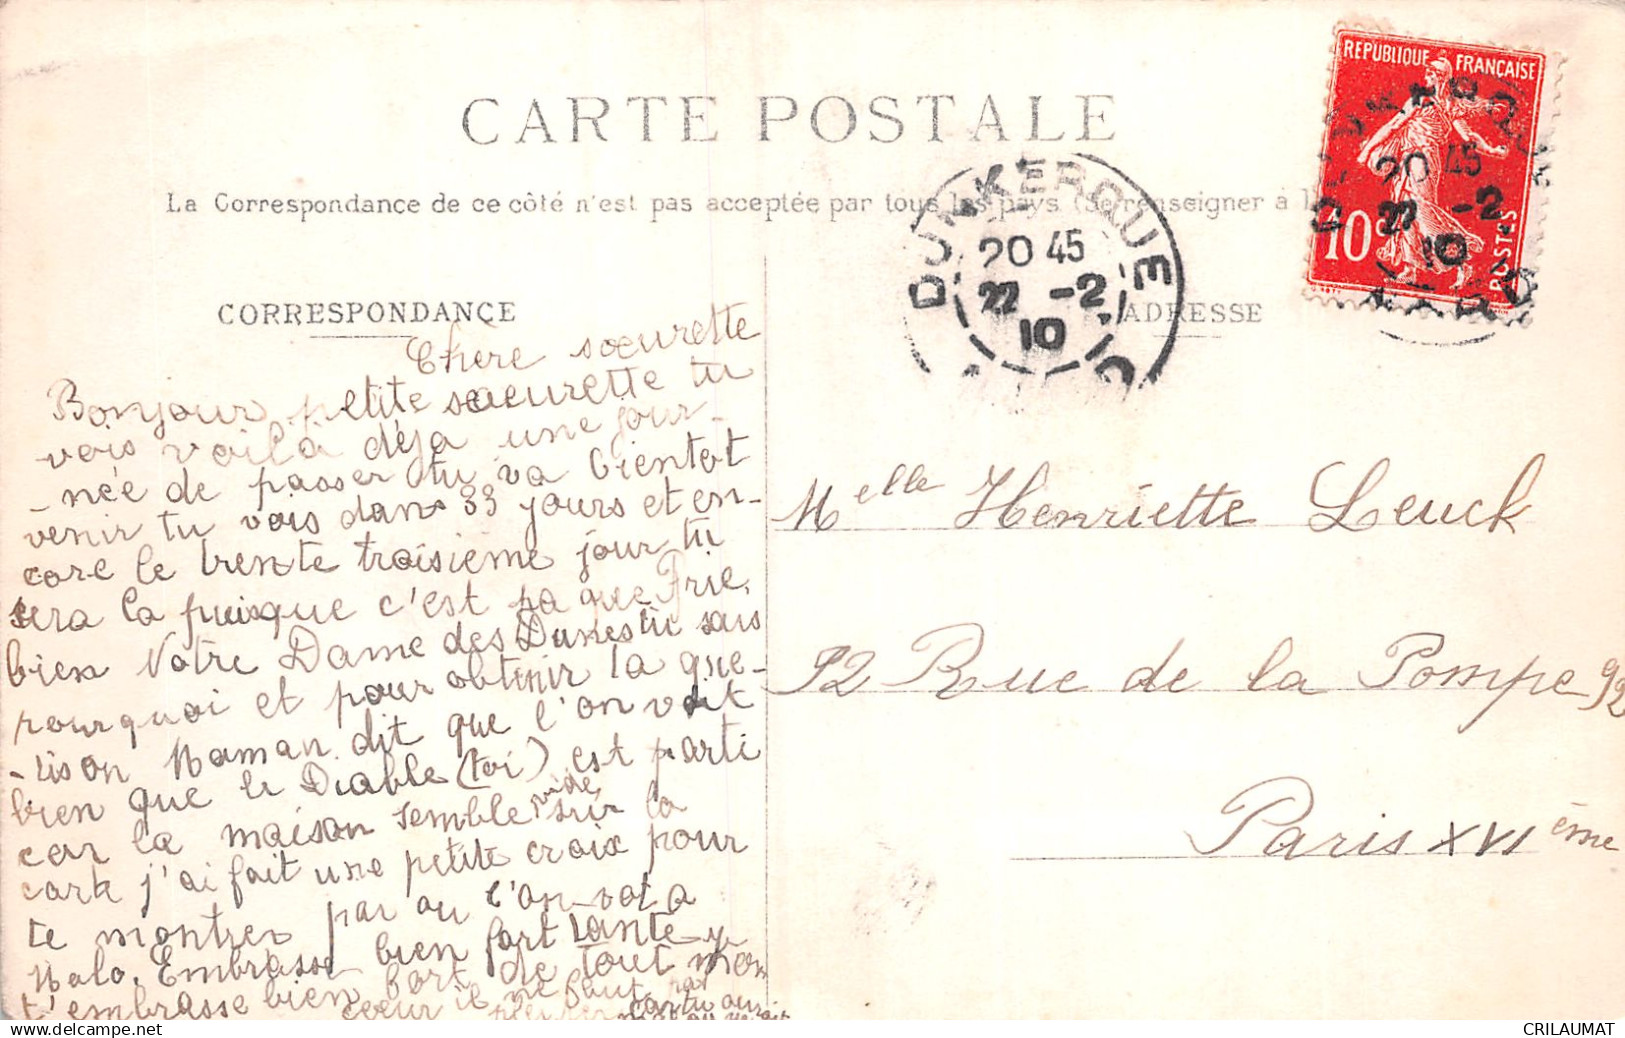 CARTE POSTALE
La Correspondance de ce côté n'est pas acceptée par tous les pays (Se renseigner à
REPUBLIQUE FRANÇAISE
10 c
POSTES
DUNKERQUE
20 45
22 -2
10
DUNKERQUE
20 45
22 -2
10
NORD
CORRESPONDANCE
ADRESSE
Chere sœurette
Bonjour petite sœurette tu
vois voilà déja une jour-
-née de passer tu va bientot
venir tu vois dans 33 jours et en-
core le trente troisième jour tu
sera la puisque c'est pa que Prie
bien Notre Dame des Dunes tu sais
pourquoi et pour obtenir la gué-
-rison Maman dit que l'on voit
bien que le Diable (toi) est parti
car la maison semble vide sur la
carte j'ai fait une petite croix pour
te montrer par ou l'on va a
Malo. Embrasse bien fort tante
t'embrasse bien fort de tout mon
cœur il ne faut pas
pleurer car tu aurai
Melle Henriette Leuck
92 Rue de la Pompe 92
Paris XVIème
CRILAUMAT